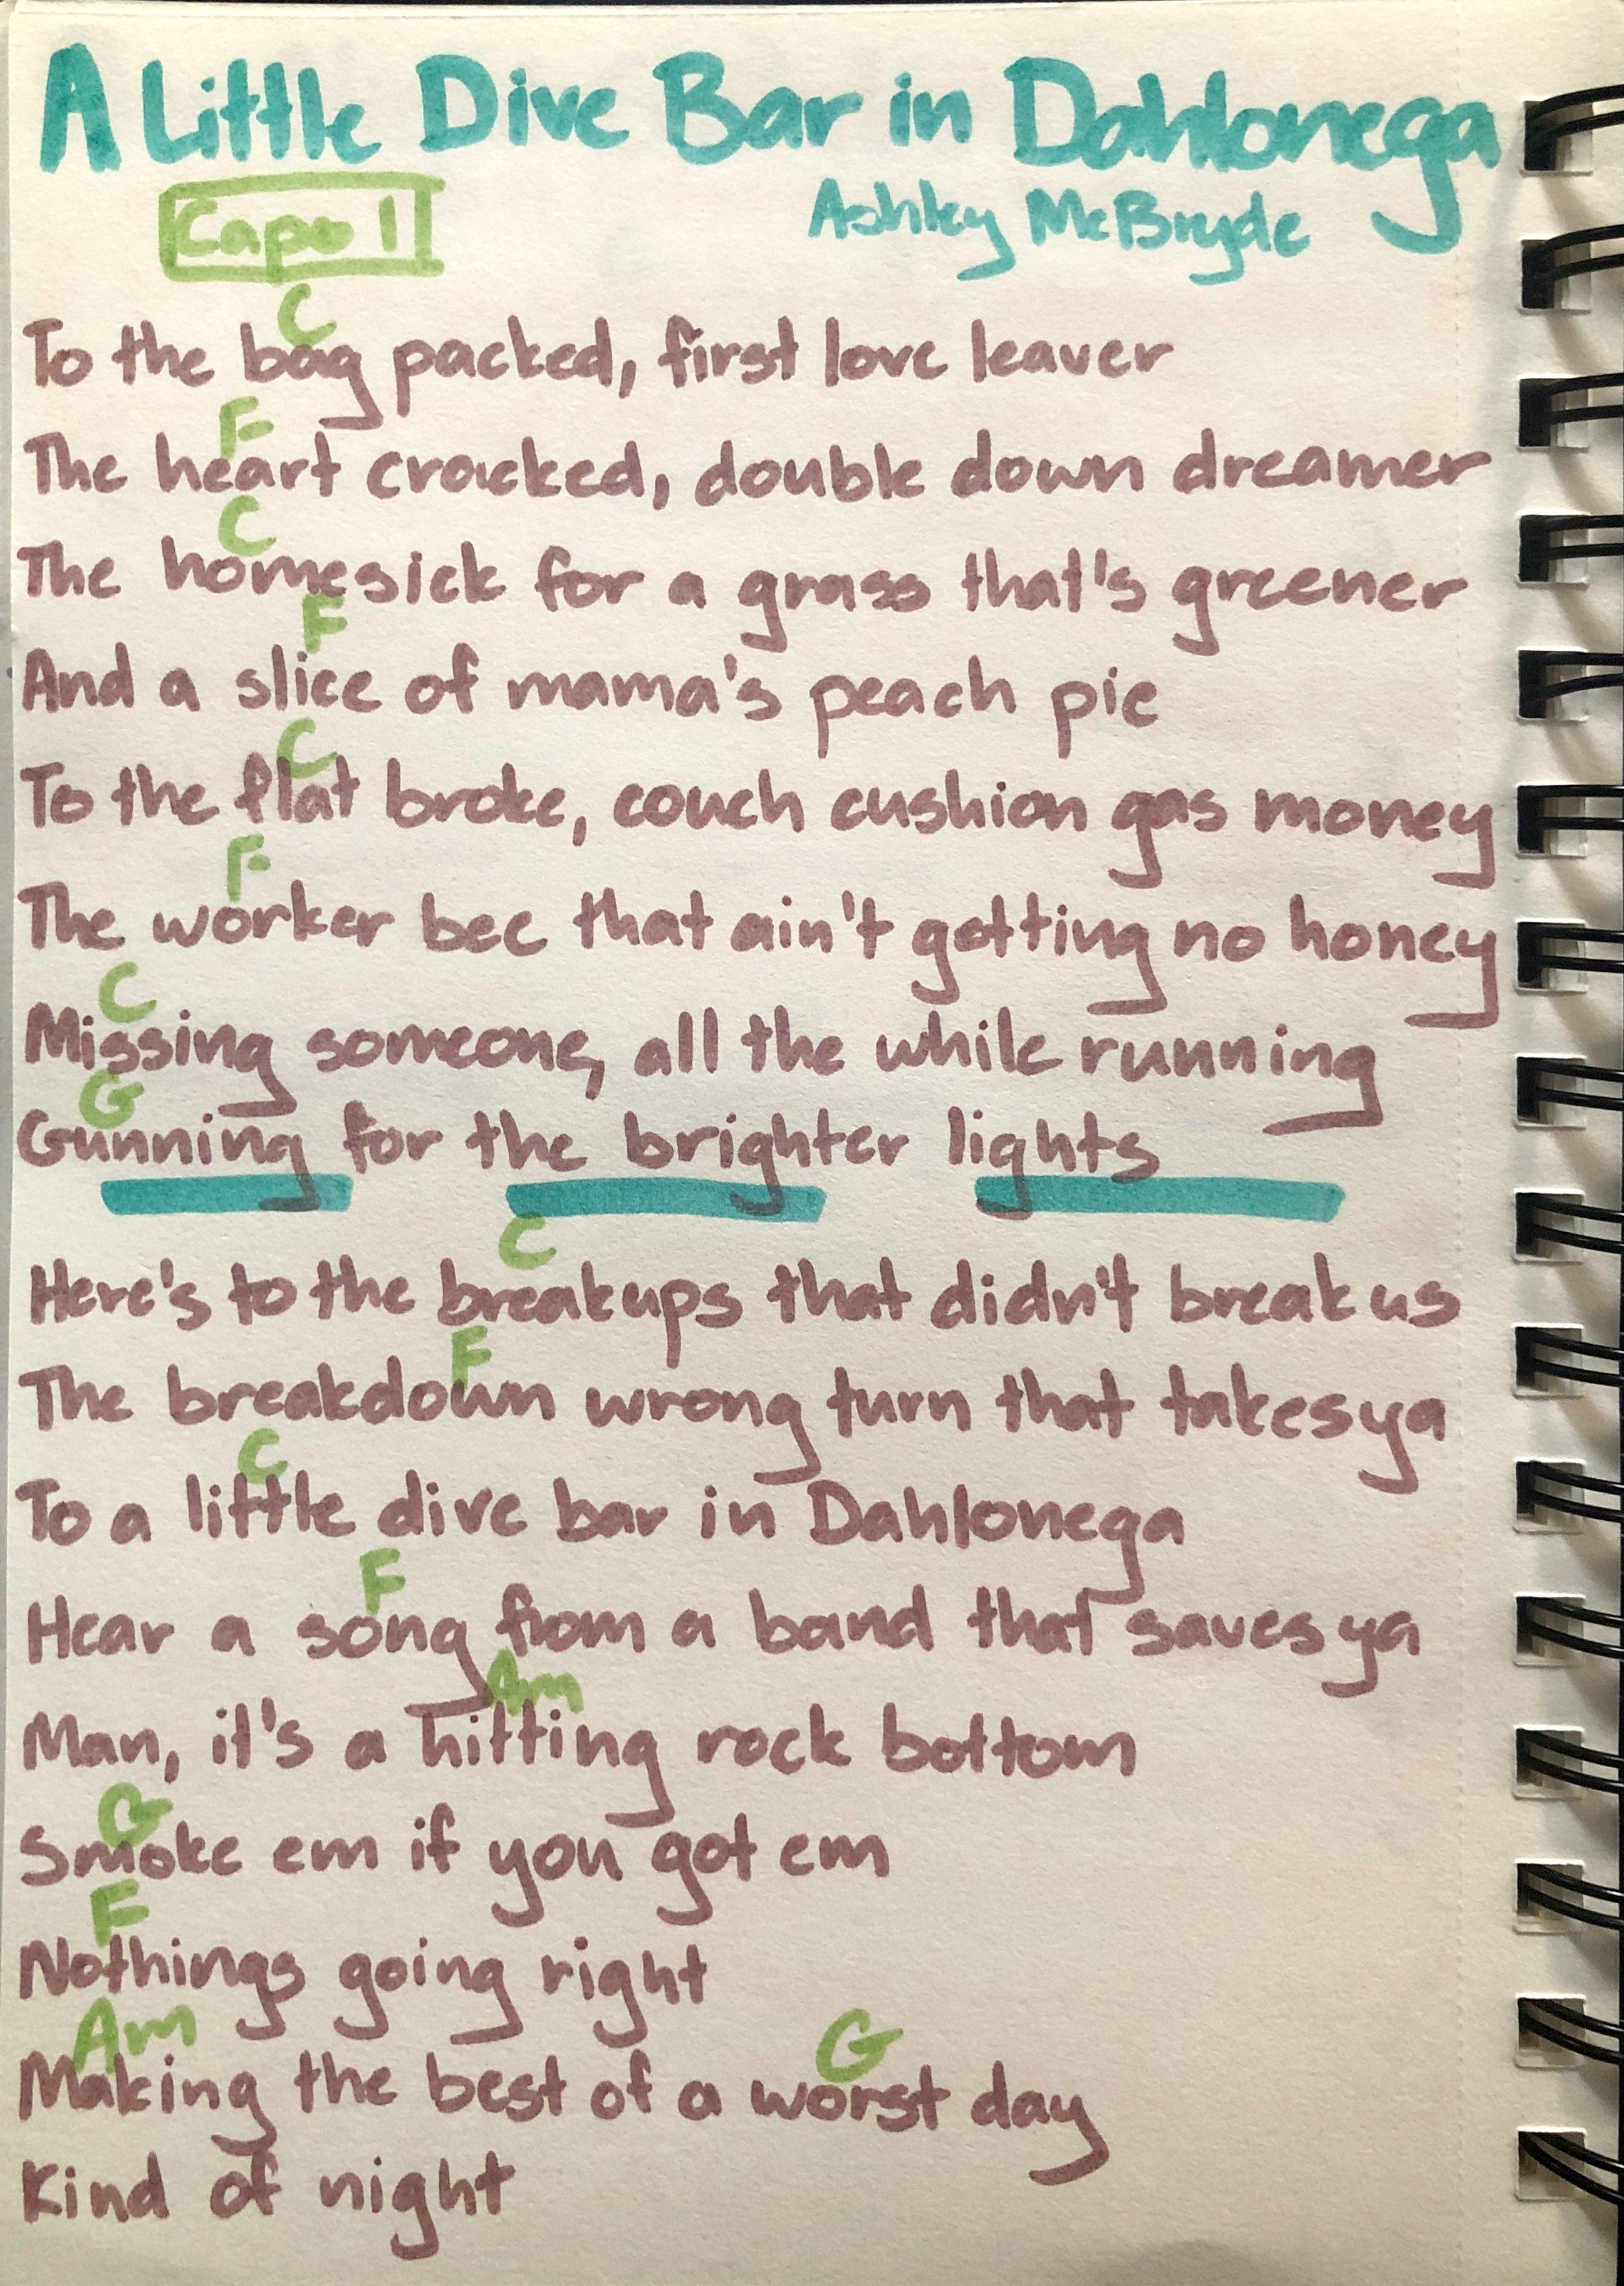 A Little Dive Bar in Dahlonega
Capo 1
Ashley McBryde
C
To the bag packed, first love leaver
F
The heart cracked, double down dreamer
C
The homesick for a grass that's greener
F
And a slice of mama's peach pie
C
To the flat broke, couch cushion gas money
F
The worker bee that ain't gotting no honey
C
Missing someone, all the while running
G
Gunning for the brighter lights
C
Here's to the breakups that didn't break us
F
The breakdown wrong turn that takes ya
C
To a little dive bar in Dahlonega
F
Hear a song from a band that saves ya
Am
Man, it's a hitting rock bottom
G
Smoke em if you got em
F
Nothings going right
Am G
Making the best of a worst day
Kind of night